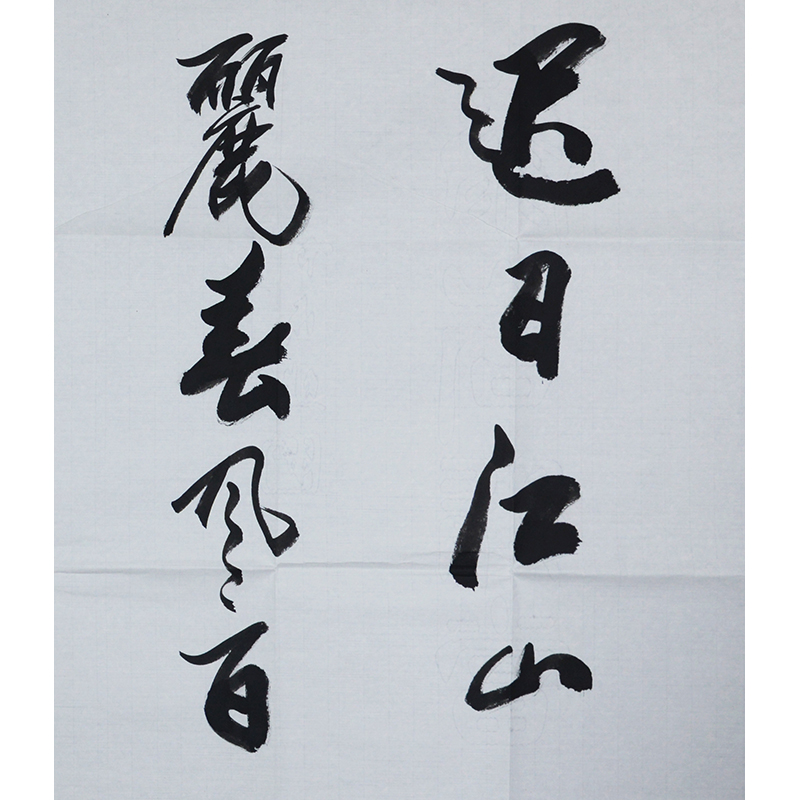 遲日江山
麗春風百